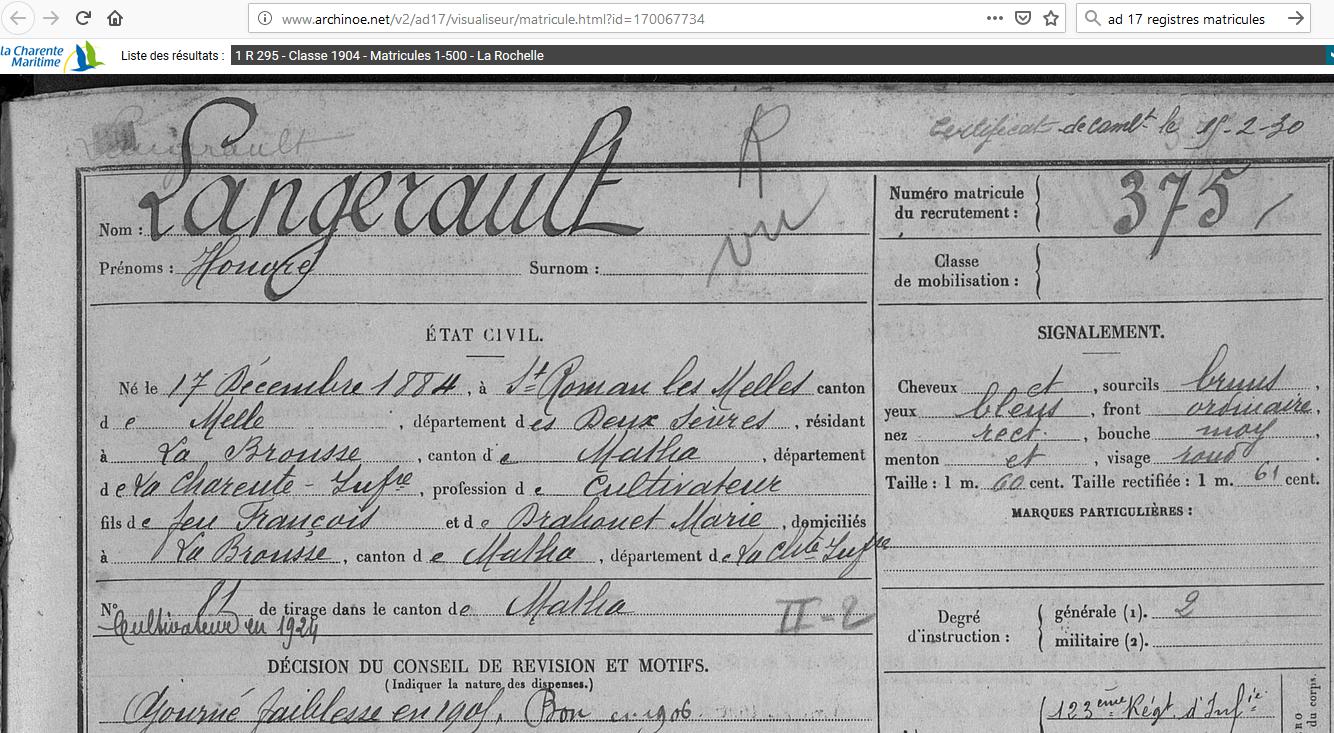 www.archinoe.net/v2/ad17/visualiseur/matricule.html?id=170067734
ad 17 registres matricules
la Charente
Maritime
Liste des résultats :
1 R 295 - Classe 1904 - Matricules 1-500 - La Rochelle
Langerault
R
Certificat de Combt le 15-2-30
Nom : Langerault
vu
Prénoms : Honoré Surnom :
Numéro matricule
du recrutement : 375
Classe
de mobilisation :
ÉTAT CIVIL.
Né le 17 Décembre 1884, à St Roman les Melles canton
de Melle, département des Deux Sèvres, résidant
à La Brousse, canton de Matha, département
de La Charente-Infre, profession de Cultivateur
fils de feu François et de Drahonet Marie, domiciliés
à La Brousse, canton de Matha, département de La Chte Infre
No 81 de tirage dans le canton de Matha
Cultivateur en 1924
II-2
DÉCISION DU CONSEIL DE REVISION ET MOTIFS.
(Indiquer la nature des dispenses.)
Ajourné faiblesse en 1905, Bon en 1906.
SIGNALEMENT.
Cheveux et, sourcils bruns,
yeux bleus, front ordinaire,
nez rect., bouche moy,
menton et, visage rond.
Taille : 1 m. 60 cent. Taille rectifiée : 1 m. 61 cent.
MARQUES PARTICULIÈRES :
Degré
d'instruction :
générale (1). 2
militaire (2).
123ème Régt d'Infie
du corps.